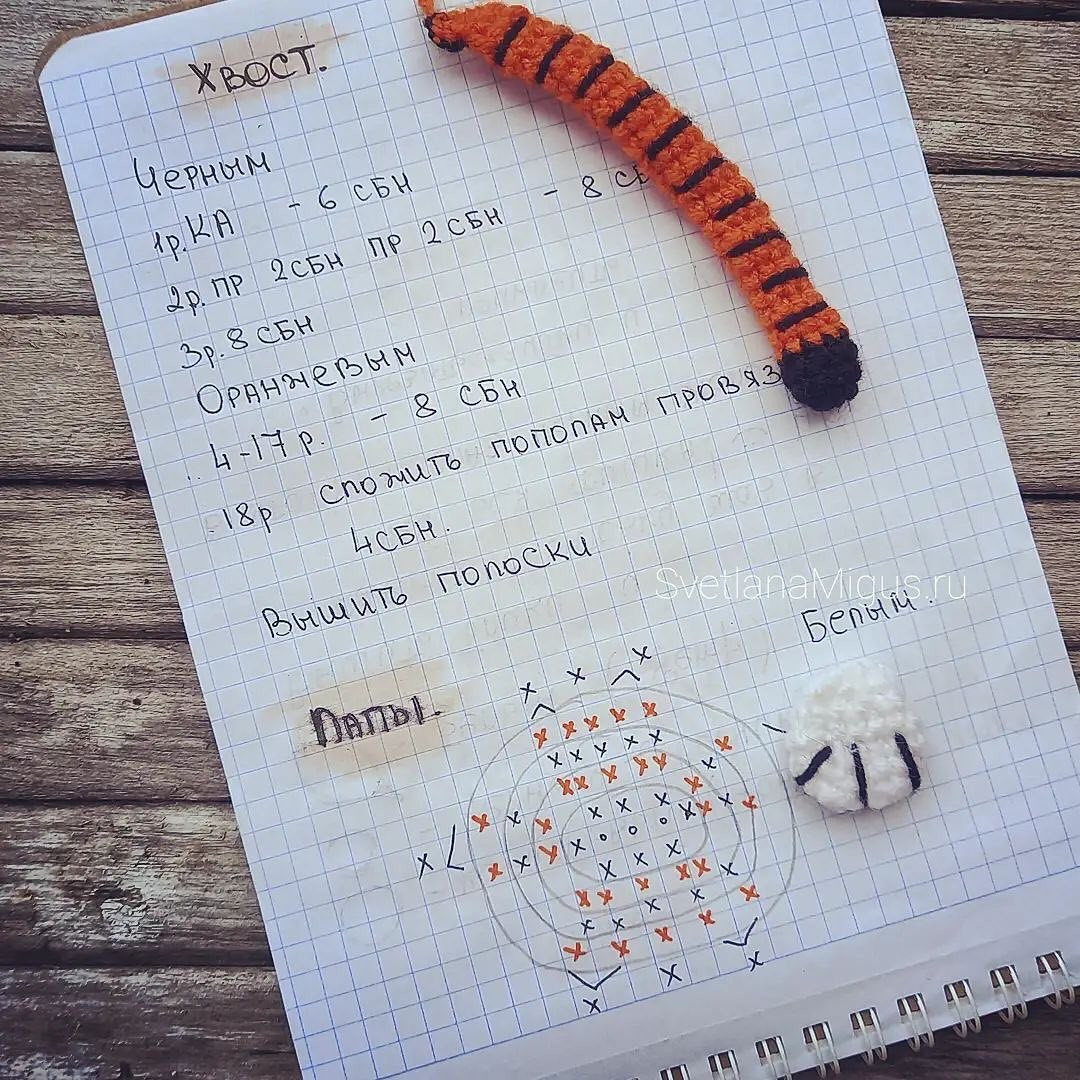 Хвост.
Черным
1р. КА - 6 СБН
2р. ПР 2СБН ПР 2СБН - 8
3р. 8 СБН
Оранжевым
4-17р. - 8 СБН
18р сложить пополам
4СБН.
Вышить полоски
SvetlanaMigus.ru
Белым.
Лапы.